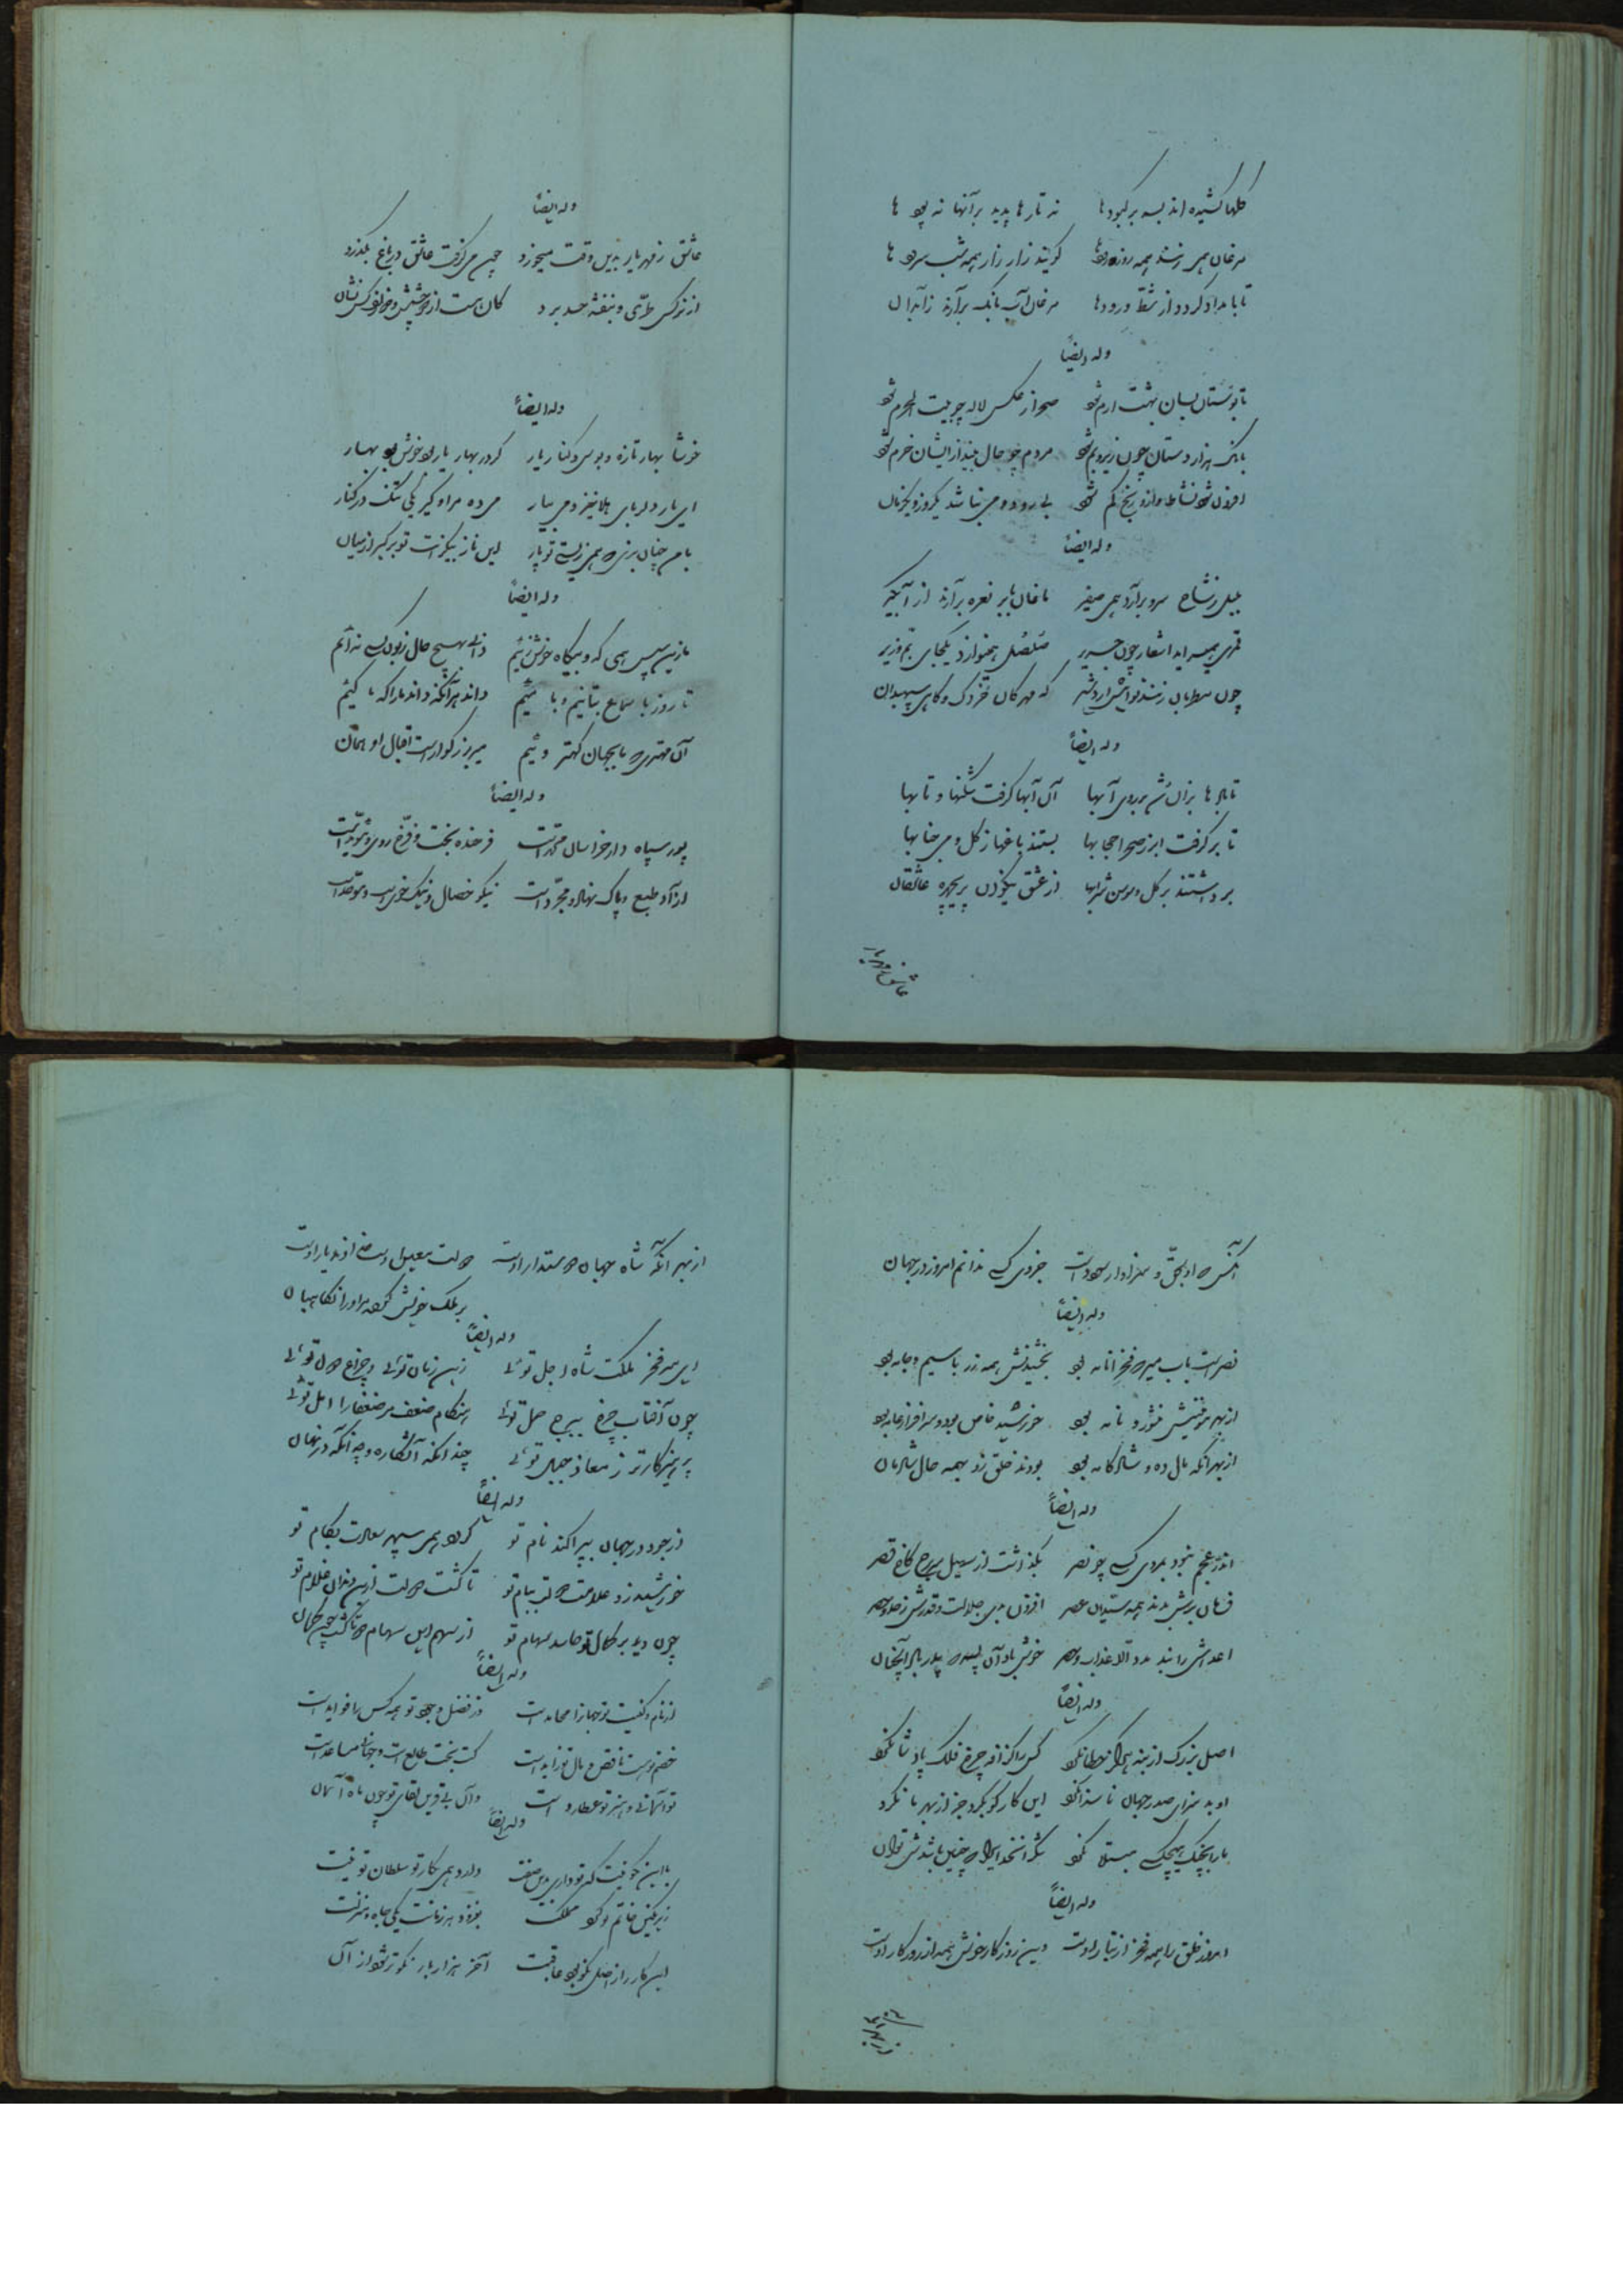 کلها کشیده اند بسر بر کبودها نه تارها پدید بر آنها نه پودها
مرغان همی زنند همه روز رودها گویند زار زار همه شب سرودها
تا بامداد گردد از شط و رودها مرغان آب بانک برآرند زآبدان
وله ایضاً
تا بوستان بسان بهشت ارم شود صحرا ز عکس لاله چو بیت الحرم شود
بانک هزار دستان چون زیر و بم شود مردم چو حال بیند ازینسان خرم شود
افزون شود نشاط و ازو رنج کم شود بی رود و می نباشد یکروز و یکزمان
وله ایضاً
بلبل ز شاخ سرو برآرد همی صفیر ماغان بابر نعره برآرند از آبگیر
قمری همی سراید اشعار چون جریر صلصل همی نوازد یکجای بم و زیر
چون مطربان زنند نوا تخت اردشیر گه مهرگان خردک و گاهی سپهبدان
وله ایضاً
تا بادها بزان شد بر روی آبها آن آبها گرفت شکنها و تابها
تا برگرفت ابر ز صحرا حجابها بستند باغها ز گل و می خضابها
برداشتند بر گل و سوسن شرابها از عشق نیکوان پریچهره عاشقان
عاشق ز مهر یار
وله ایضاً
عاشق ز مهر یار بدین وقت میخورد چون می گرفت عاشق در باغ بگذرد
از نرگس طری و بنفشه حسد برد کان هست از دو چشم و دو زلف کس نشان
وله ایضاً
خوشا بهار تازه و بوس و کنار یار گر در بهار یار بود خوش بود بهار
ای یار دلربای هلا خیز و می بیار می ده مرا و گیر یکی تنگ در کنار
با من چنان بزی که همی زیستی تو پار این ناز بیکرانت تو برگیر از میان
وله ایضاً
تا زین سپس همی گه و بیگاه خوش زئیم دانی بهیچ حال زبون کسی نه ایم
تا روز با سماع بتانیم و با میئیم داند هر آنکه داند ما را که ما کئیم
آن مهتری که ما بجهان کهتر وئیم میر بزرگوار است اقبال او همان
وله ایضاً
پور سپاه دار خراسان محمد است فرخنده بخت و فرخ روی و مؤید است
آزاد طبع و پاک نهاد و ممجد است نیکو خصال و نیک خوی است و موحد است
آنکس که او بحق و سزاوار سودد است جز وی کسی ندانم امروز در جهان
وله ایضاً
نصر است باب میر که فخر انام بود بخشیدنش همه زر با سیم و جام بود
بودند خلق زو بهمه حال شادمان
وله ایضاً
اندر عجم نبود بمردی کسی چو نصر بگذاشت از سهیل سر برج کاخ قصر
فرمان برش بدند همه سیدان عصر افزون بدی جلالت و قدرش ز حد و حصر
وله ایضاً
اصل بزرگ از بنه هرگز خطا نکرد کس را گزافه چرخ فلک پادشا نکرد
او بد سزای صدر جهان ناسزا نکرد این کار کو بکرد جز از بهر ما نکرد
وله ایضاً
امروز خلق را همه فخر از تبار اوست وین روزگار خوش همه از روزگار اوست
از بهر آنکه
از بهر آنکه شاه جهان دوستدار اوست دولت معین اوست خداوند یار اوست
بر ملک خویش کرده مر او را نگاهبان
وله ایضاً
ای میر فخر ملکت شاه اجل توئی زین زمان توئی و چراغ دول توئی
چون آفتاب چرخ ببرج حمل توئی هنگام ضعف مر ضعفا را امل توئی
پرهیزکارتر ز معاذ جبل توئی چندانکه آشکاره و چندانکه در نهان
وله ایضاً
از جود در جهان بپراکند نام تو گردد همی سپهر سعادت بکام تو
خورشید زد علامت دولت ببام تو تا گشت دولت از بن دندان غلام تو
چون دید بر کمال تو حاسد سهام تو از سهم این سهام دو تا گشت چون کمان
وله ایضاً
از نام و کنیت تو جهانرا محامد است وز فضل وجود تو همه کس را فواید است
خصم تو هست ناقص و مال تو زاید است کت بخت طالع است و جهانت مساعد است
تو آسمانی و هنر تو عطارد است وآن بی قرین لقای تو چون ماه آسمان
وله ایضاً
با این نکو نیت که تو داری و این صفت دارد همی بکار تو سلطان تو نیت
زیر نگین خاتم تو کرد مملکت بفزود هر زمانت یکی جاه و منزلت
این کار را ز اصل نکو بود عاقبت آخر هزار بار نکوتر شود از آن